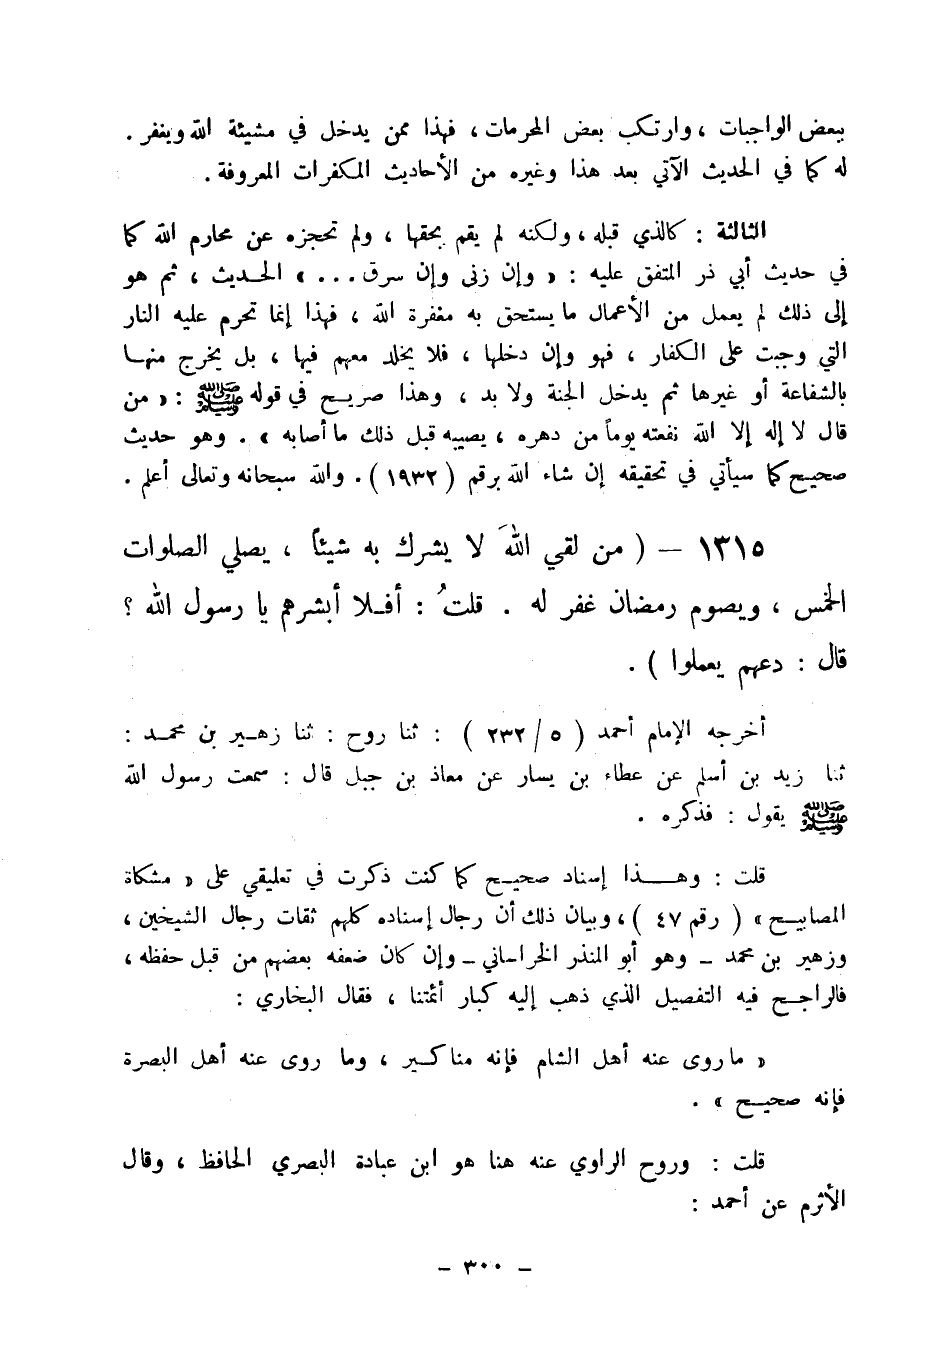 ببعض الواجبات ، وارتكب بعض المحرمات ، فهذا ممن يدخل في مشيئة الله ويغفر .
له كما في الحديث الآتي بعد هذا وغيره من الأحاديث المكفرات المعروفة .
الثالثة : كالذي قبله ، ولكنه لم يقم بحقها ، ولم تحجزه عن محارم الله كما
في حديث أبي ذر المتفق عليه : « وإن زنى وإن سرق . . . » الحديث ، ثم هو
إلى ذلك لم يعمل من الأعمال ما يستحق به مغفرة الله ، فهذا إنما تحرم عليه النار
التي وجبت على الكفار ، فهو وإن دخلها ، فلا يخلد معهم فيها ، بل يخرج منها
بالشفاعة أو غيرها ثم يدخل الجنة ولا بد ، وهذا صريح في قوله ﷺ : « من
قال لا إله إلا الله نفعته يوماً من دهره ، يصيبه قبل ذلك ما أصابه » . وهو حديث
صحيح كما سيأتي في تحقيقه إن شاء الله برقم ( ١٩٣٢ ) . والله سبحانه وتعالى أعلم .
١٣١٥ – ( من لقي اللهَ لا يشرك به شيئاً ، يصلي الصلوات
الخمس ، ويصوم رمضان غفر له . قلتُ : أفلا أبشرهم يا رسول الله ؟
قال : دعهم يعملوا ) .
أخرجه الإمام أحمد ( ٥ / ٢٣٢ ) : ثنا روح : ثنا زهير بن محمد :
ثنا زيد بن أسلم عن عطاء بن يسار عن معاذ بن جبل قال : سمعت رسول الله
ﷺ يقول : فذكره .
قلت : وهذا إسناد صحيح كما كنت ذكرت في تعليقي على « مشكاة
المصابيح » ( رقم ٤٧ ) ، وبيان ذلك أن رجال إسناده كلهم ثقات رجال الشيخين ،
وزهير بن محمد – وهو أبو المنذر الخراساني – وإن كان ضعفه بعضهم من قبل حفظه ،
فالراجح فيه التفصيل الذي ذهب إليه كبار أئمتنا ، فقال البخاري :
« ما روى عنه أهل الشام فإنه مناكير ، وما روى عنه أهل البصرة
فإنه صحيح » .
قلت : وروح الراوي عنه هنا هو ابن عبادة البصري الحافظ ، وقال
الأثرم عن أحمد :
– ٣٠٠ –